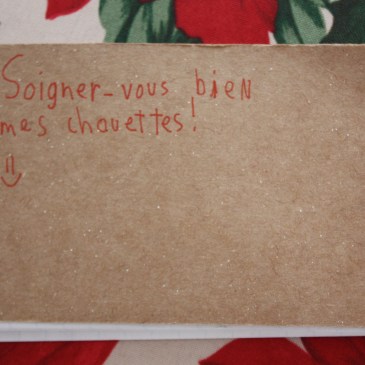 Soigner-vous bien
mes chouettes!
=)